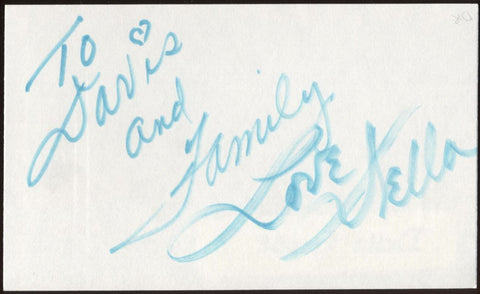 To
Davis
and
Family
Love Stella